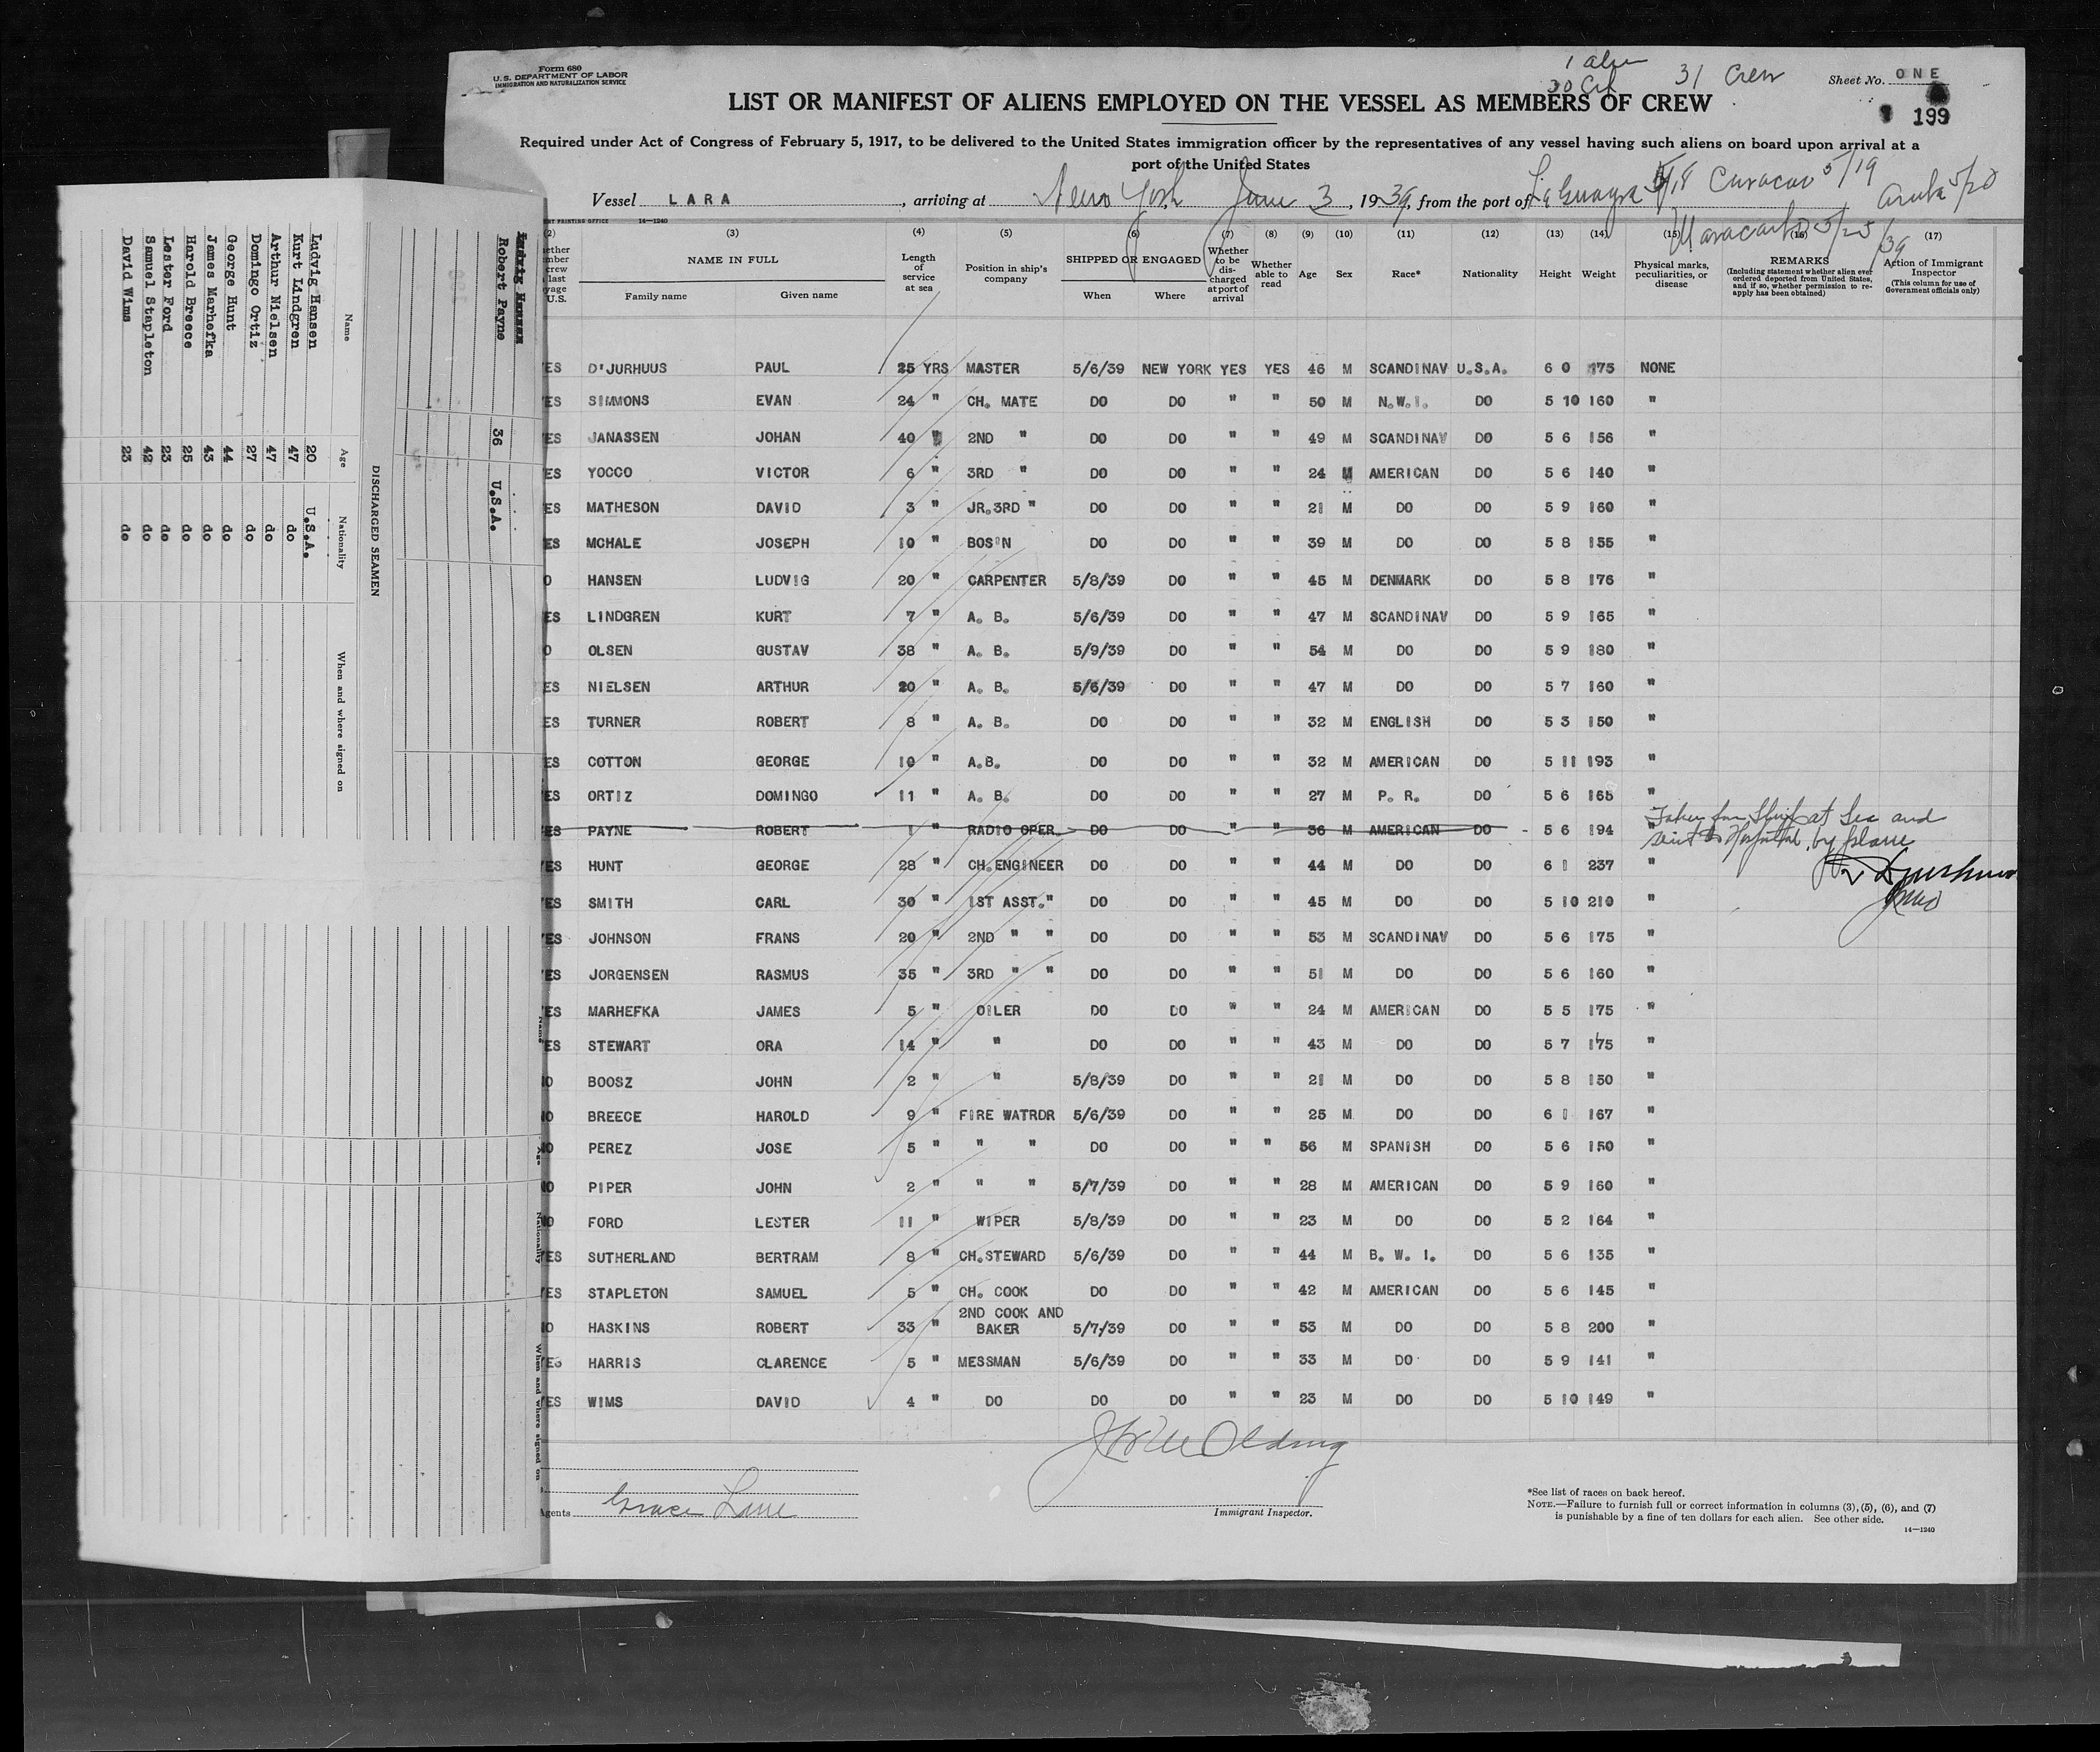 Form 680
U.S. DEPARTMENT OF LABOR
IMMIGRATION AND NATURALIZATION SERVICE
31 Crew
Sheet No. ONE
199
LIST OR MANIFEST OF ALIENS EMPLOYED ON THE VESSEL AS MEMBERS OF CREW
Required under Act of Congress of February 5, 1917, to be delivered to the United States immigration officer by the representatives of any vessel having such aliens on board upon arrival at a
port of the United States
Vessel LARA, arriving at New York June 3, 1939, from the port of La Guayra 5/18 Curacao 5/19 Aruba 5/20
Maracaibo 5/25/39
14—1240
(2) (3) (4) (5) (6) (7) (8) (9) (10) (11) (12) (13) (14) (15) (16) (17)
NAME IN FULL
Family name Given name
Length of service at sea
Position in ship's company
SHIPPED OR ENGAGED
When Where
Whether to be discharged at port of arrival
Whether able to read
Age Sex Race* Nationality Height Weight
Physical marks, peculiarities, or disease
REMARKS
(Including statement whether alien ever ordered deported from United States, and if so, whether permission to re-apply has been obtained)
Action of Immigrant Inspector
(This column for use of Government officials only)
ES D'JURHUUS PAUL 25 YRS MASTER 5/6/39 NEW YORK YES YES 46 M SCANDINAV U.S.A. 6 0 175 NONE
ES SIMMONS EVAN 24 " CH. MATE DO DO " " 50 M N.W.I. DO 5 10 160 "
ES JANASSEN JOHAN 40 " 2ND " DO DO " " 49 M SCANDINAV DO 5 6 156 "
ES YOCCO VICTOR 6 " 3RD " DO DO " " 24 M AMERICAN DO 5 6 140 "
ES MATHESON DAVID 3 " JR.3RD " DO DO " " 21 M DO DO 5 9 160 "
ES MCHALE JOSEPH 10 " BOS'N DO DO " " 39 M DO DO 5 8 155 "
O HANSEN LUDVIG 20 " CARPENTER 5/8/39 DO " " 45 M DENMARK DO 5 8 176 "
ES LINDGREN KURT 7 " A. B. 5/6/39 DO " " 47 M SCANDINAV DO 5 9 165 "
O OLSEN GUSTAV 38 " A. B. 5/9/39 DO " " 54 M DO DO 5 9 180 "
ES NIELSEN ARTHUR 20 " A. B. 5/6/39 DO " " 47 M DO DO 5 7 160 "
ES TURNER ROBERT 8 " A. B. DO DO " " 32 M ENGLISH DO 5 3 150 "
ES COTTON GEORGE 10 " A.B. DO DO " " 32 M AMERICAN DO 5 11 193 "
ES ORTIZ DOMINGO 11 " A. B. DO DO " " 27 M P. R. DO 5 6 165 "
ES PAYNE ROBERT 1 " RADIO OPER. DO DO " " 36 M AMERICAN DO 5 6 194 " Taken from Ship at Sea and
sent to Hospital by plane
YES HUNT GEORGE 28 " CH.ENGINEER DO DO " " 44 M DO DO 6 1 237 "
YES SMITH CARL 30 " 1ST ASST." DO DO " " 45 M DO DO 5 10 210 "
YES JOHNSON FRANS 20 " 2ND " " DO DO " " 53 M SCANDINAV DO 5 6 175 "
YES JORGENSEN RASMUS 35 " 3RD " " DO DO " " 51 M DO DO 5 6 160 "
YES MARHEFKA JAMES 5 " OILER DO DO " " 24 M AMERICAN DO 5 5 175 "
ES STEWART ORA 14 " " DO DO " " 43 M DO DO 5 7 175 "
NO BOOSZ JOHN 2 " " 5/8/39 DO " " 21 M DO DO 5 8 150 "
NO BREECE HAROLD 9 " FIRE WATRDR 5/6/39 DO " " 25 M DO DO 6 1 167 "
NO PEREZ JOSE 5 " " " DO DO " " 56 M SPANISH DO 5 6 150 "
NO PIPER JOHN 2 " " " 5/7/39 DO " " 28 M AMERICAN DO 5 9 160 "
NO FORD LESTER 11 " WIPER 5/8/39 DO " " 23 M DO DO 5 2 164 "
YES SUTHERLAND BERTRAM 8 " CH.STEWARD 5/6/39 DO " " 44 M B. W. I. DO 5 6 135 "
YES STAPLETON SAMUEL 5 " CH. COOK DO DO " " 42 M AMERICAN DO 5 6 145 "
NO HASKINS ROBERT 33 " 2ND COOK AND BAKER 5/7/39 DO " " 53 M DO DO 5 8 200 "
YES HARRIS CLARENCE 5 " MESSMAN 5/6/39 DO " " 33 M DO DO 5 9 141 "
YES WIMS DAVID 4 " DO DO DO " " 23 M DO DO 5 10 149 "
Agents Grace Line
Immigrant Inspector.
*See list of races on back hereof.
NOTE.—Failure to furnish full or correct information in columns (3), (5), (6), and (7)
is punishable by a fine of ten dollars for each alien. See other side.
14—1240
Robert Payne 36 U.S.A.
DISCHARGED SEAMEN
Name Age Nationality When and where signed on
Ludvig Hansen 20 U.S.A.
Kurt Lindgren 47 do
Arthur Nielsen 47 do
Domingo Ortiz 27 do
George Hunt 44 do
James Marhefka 43 do
Harold Breece 25 do
Lester Ford 23 do
Samuel Stapleton 42 do
David Wims 23 do
Name Age Nationality When and where signed on